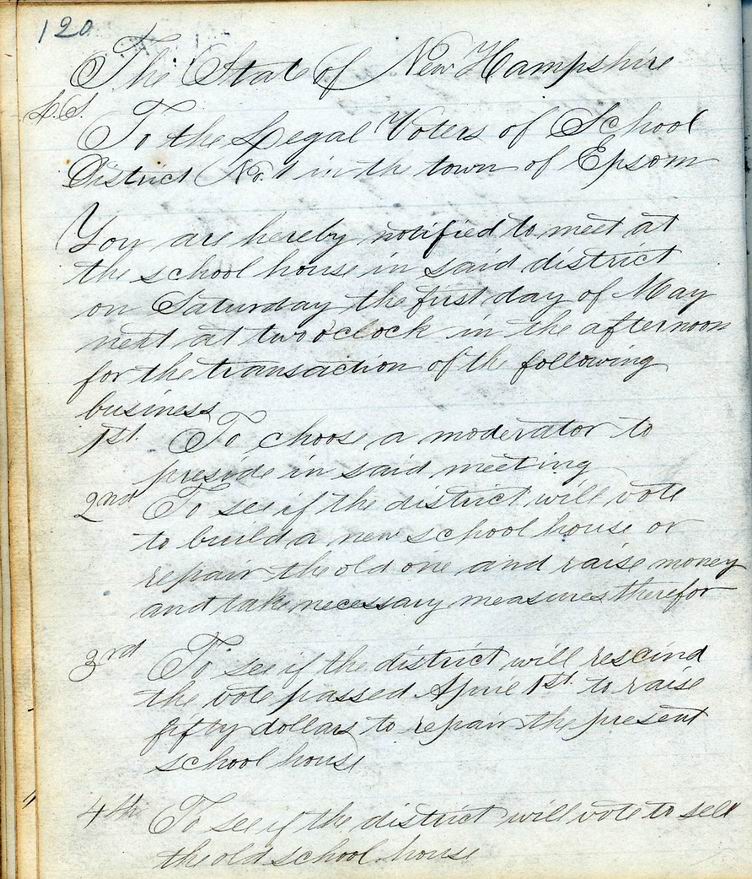 120
The State of New Hampshire
L.S.
To the Legal Voters of School
District No. 1 in the town of Epsom
You are hereby notified to meet at
the school house in said district
on Saturday the first day of May
next at two o'clock in the afternoon
for the transaction of the following
business
1st. To choose a moderator to
preside in said meeting
2nd To see if the district will vote
to build a new school house or
repair the old one and raise money
and take necessary measures therefor
3rd To see if the district will rescind
the vote passed April 1st. to raise
fifty dollars to repair the present
school house
4th To see if the district will vote to sell
the old school house